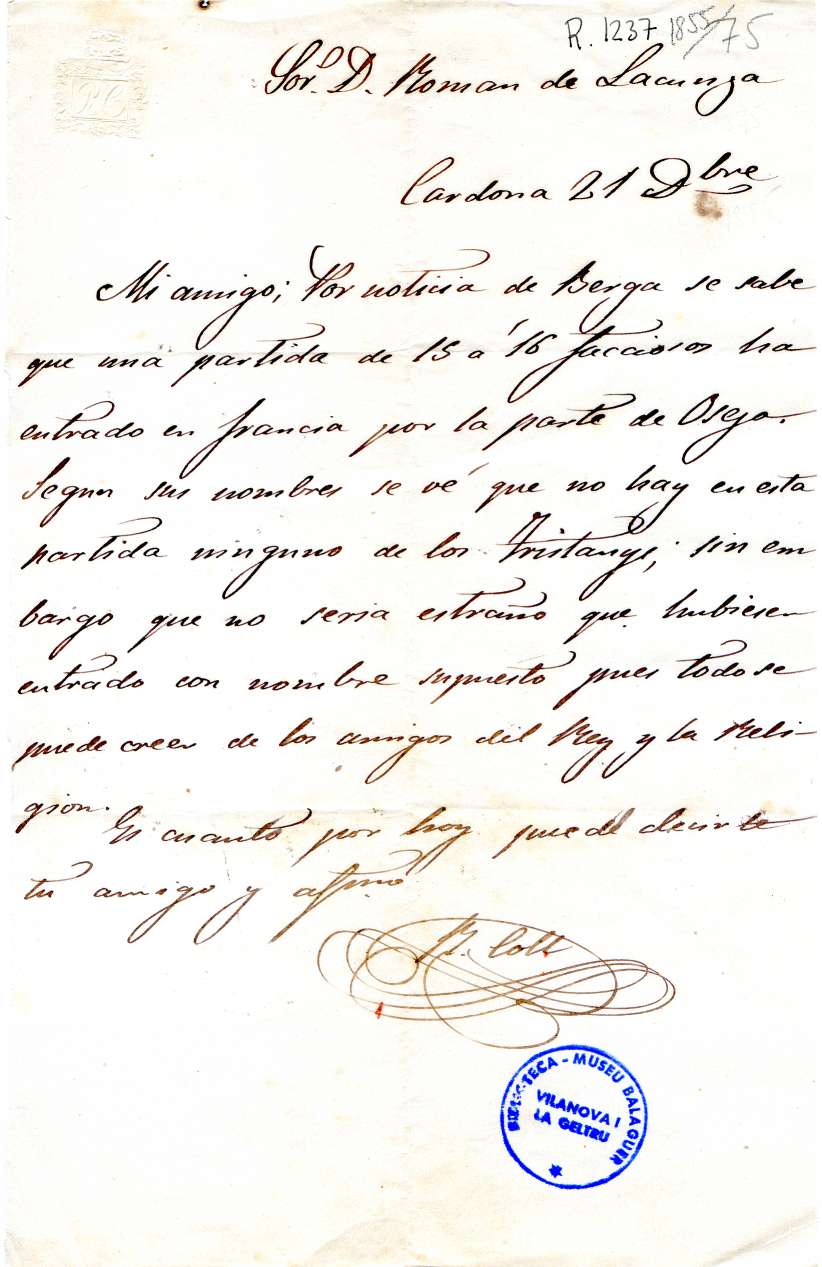 R. 1237 1855/75
Sor. D. Roman de Lacunza
Cardona 21 Dbre
Mi amigo; Por noticia de Berga se sabe
que una partida de 15 a 16 facciosos ha
entrado en francia por la parte de Oseja.
Segun sus nombres se vé que no hay en esta
partida ninguno de los Tristanys; sin em
bargo que no seria estraño que hubiesen
entrado con nombre supuesto pues todo se
puede creer de los amigos del Rey y la Reli-
gion.
Es cuanto por hoy puede decirte
tu amigo y afmo
R. Coll
BIBLIOTECA - MUSEU BALAGUER
VILANOVA I
LA GELTRU